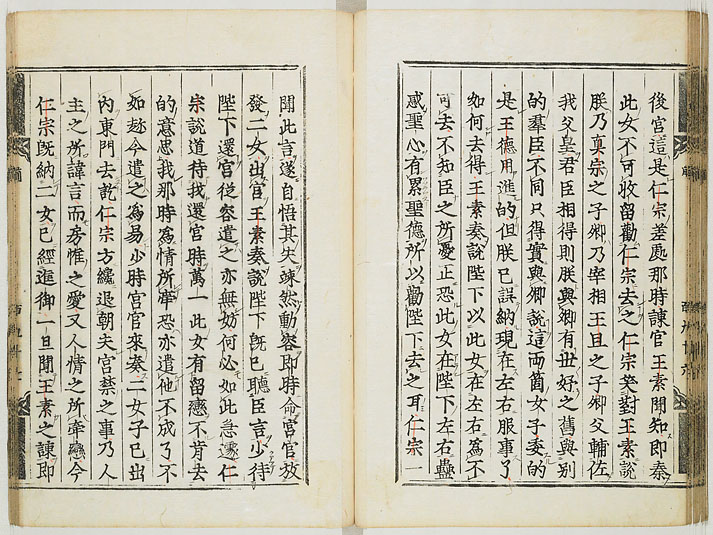 後宮這是仁宗差處那時諫官王素聞知即奏
此女不可收留勸仁宗去之仁宗笑對王素說
朕乃真宗之子卿乃宰相王旦之子卿父輔佐
我父皇君臣相得則朕與卿有世好之舊與別
的羣臣不同只得實與卿說這兩箇女子委的
是王德用進的但朕已誤納現在左右服事了
如何去得王素奏說陛下以此女在左右為不
可去不知臣之所憂正恐此女在陛下左右蠱
惑聖心有累聖德所以勸陛下去之耳仁宗一
聞此言遂自悟其失竦然動容即時命宮官放
發二女出宮王素奏說陛下既已聽臣言少待
陛下還宮從容遣之亦無妨何必如此急遽仁
宗說道待我還宮時萬一此女有留戀不肯去
的意思我那時為情所牽恐亦遣他不成了不
如趂今遣之為易少時宮官來奏二女子已出
內東門去訖仁宗方纔退朝夫宮禁之事乃人
主之所諱言而房惟之愛又人情之所牽戀今
仁宗既納二女已經進御一旦聞王素之諫即